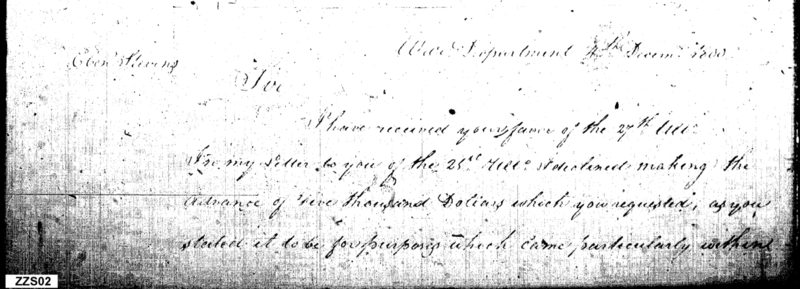 War Department 4th Decemr. 1800
Ebenr Stevens
Sir
I have received your favor of the 27th Ulto.
In my letter to you of the 21st Ulto. I declined making the
advance of five thousand Dollars which you requested, as you
stated it to be for purposes which came particularly within
ZZS02